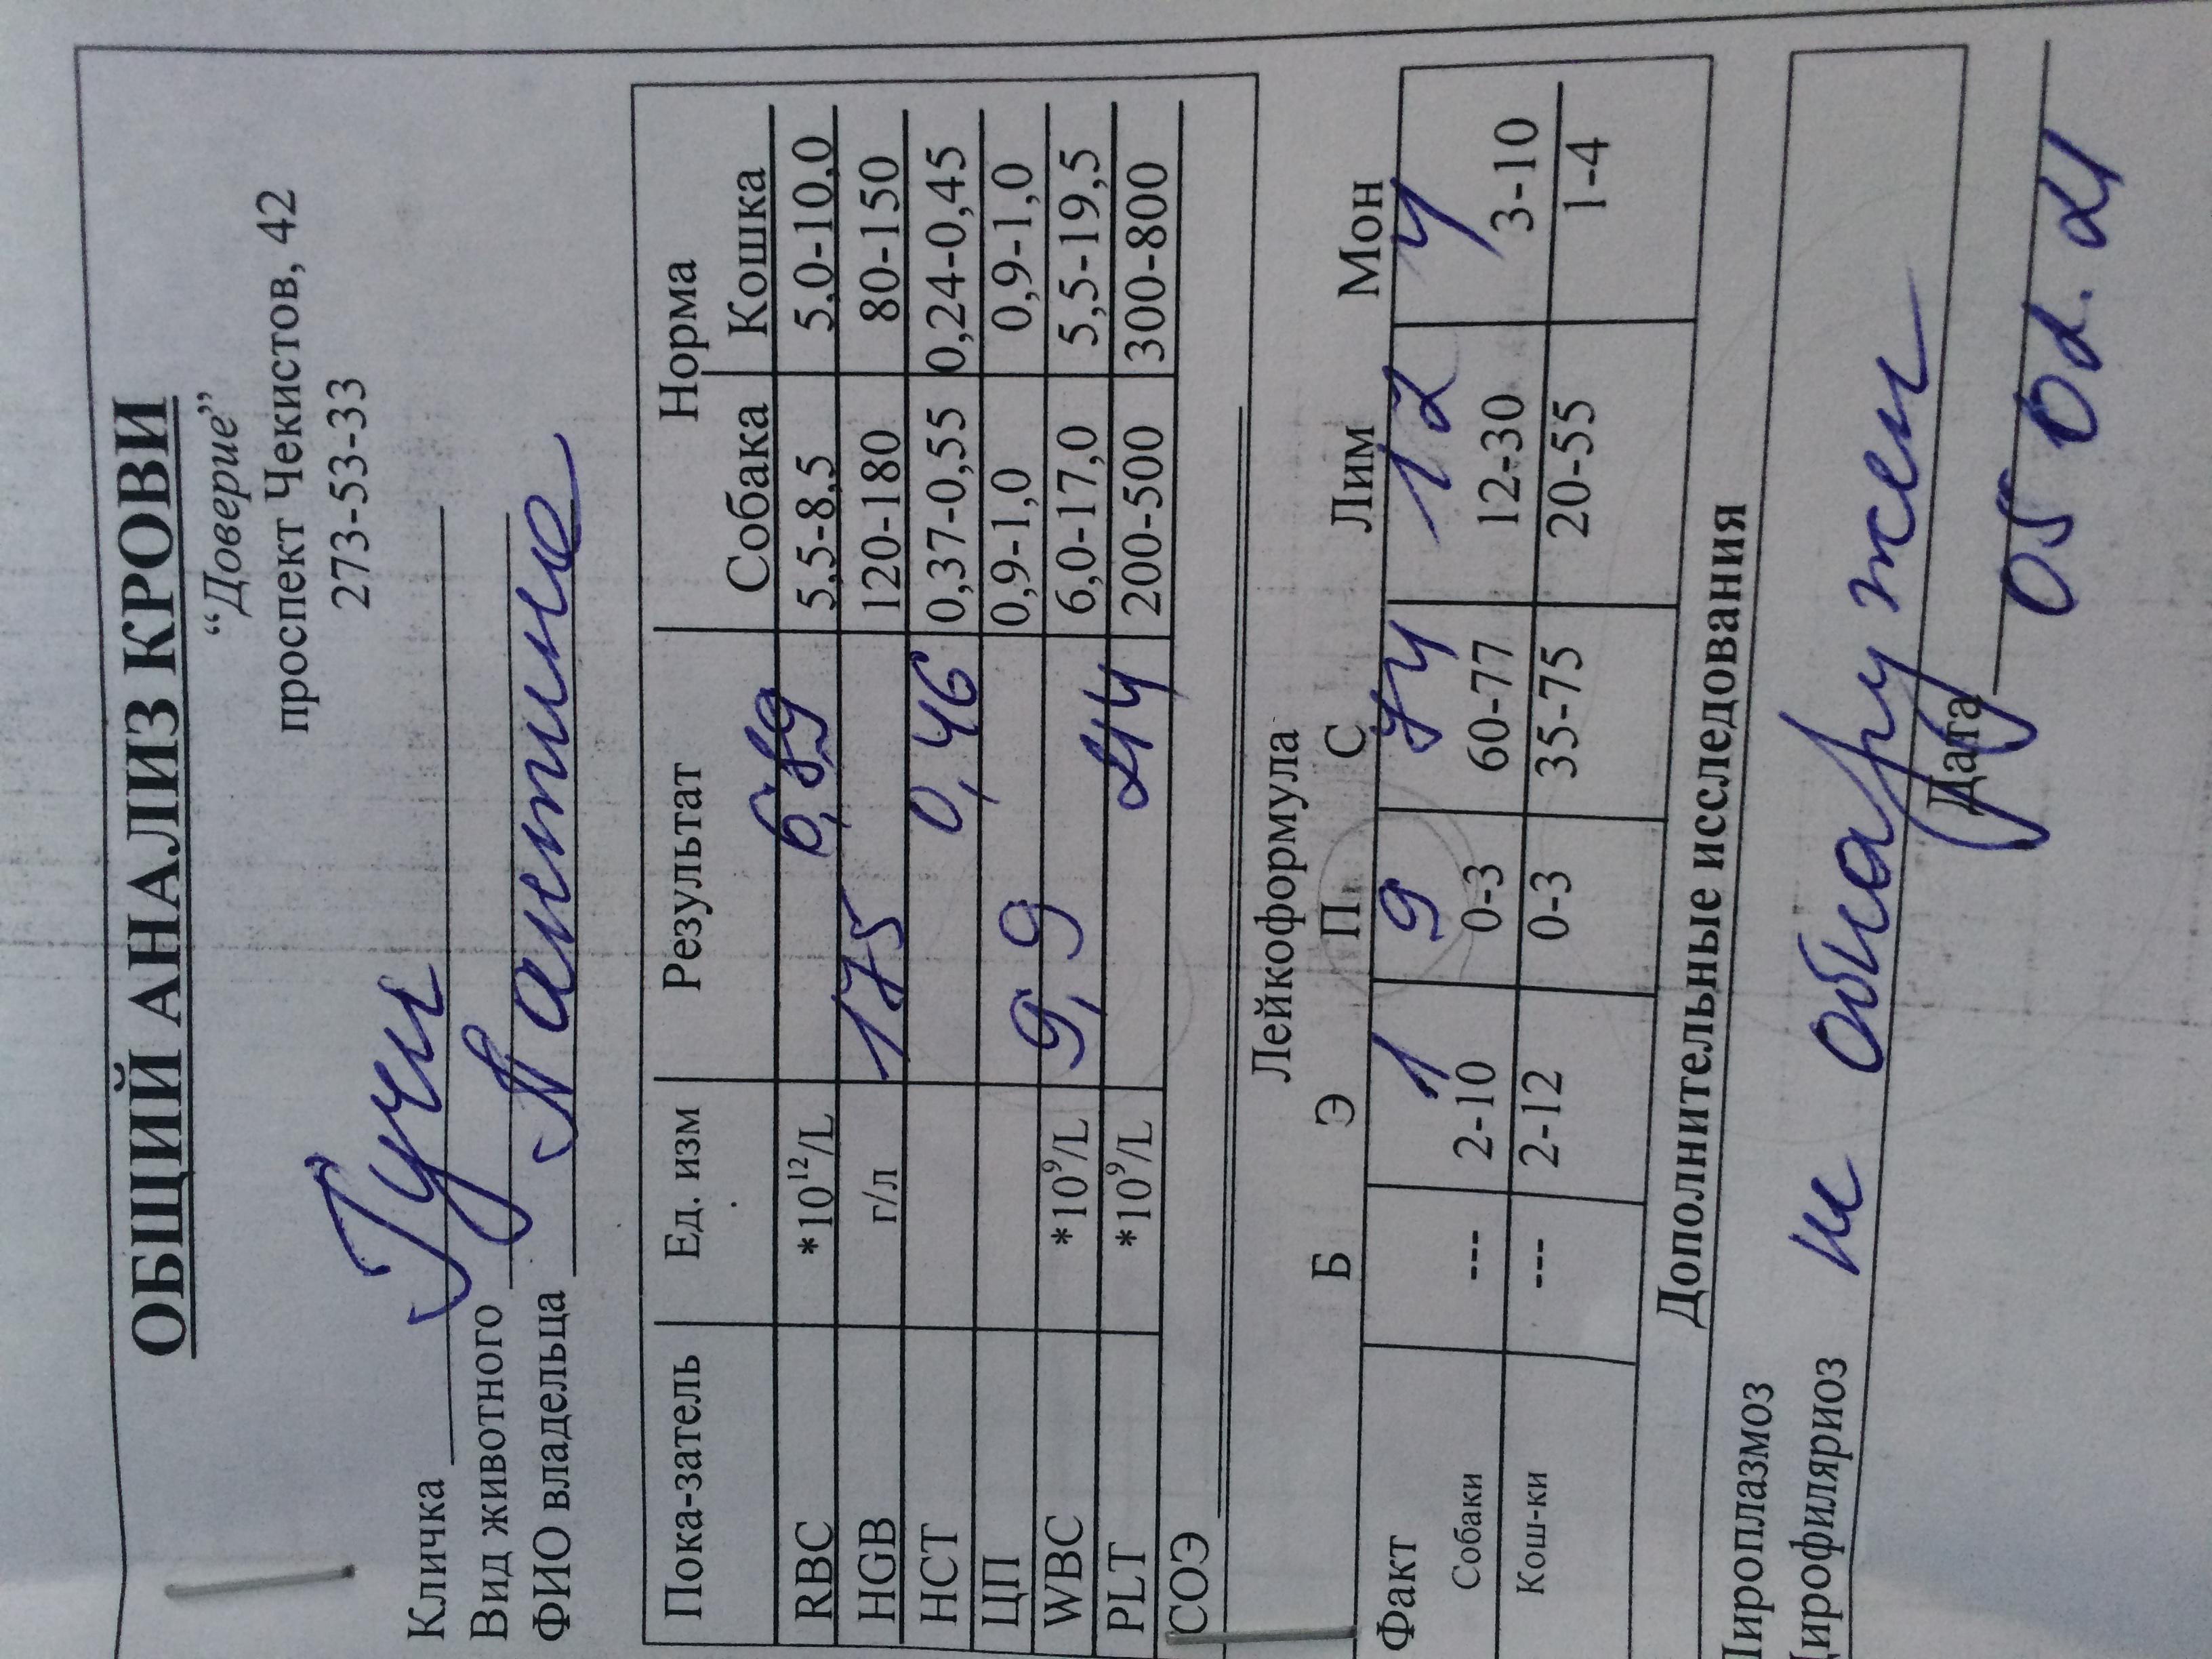 ОБЩИЙ АНАЛИЗ КРОВИ
“Доверие”
проспект Чекистов, 42
273-53-33
Кличка Гучи
Вид животного
ФИО владельца
Пока-затель Ед. изм Результат Норма
Собака Кошка
RBC *10¹²/L 6,89 5,5-8,5 5,0-10,0
HGB г/л 175 120-180 80-150
HCT 0,46 0,37-0,55 0,24-0,45
ЦП 0,9-1,0 0,9-1,0
WBC *10⁹/L 9,9 6,0-17,0 5,5-19,5
PLT *10⁹/L 244 200-500 300-800
СОЭ
Лейкоформула
Б Э П С Лим Мон
Факт 1 9 74 12 4
Собаки --- 2-10 0-3 60-77 12-30 3-10
Кош-ки --- 2-12 0-3 35-75 20-55 1-4
Дополнительные исследования
Пироплазмоз
Дирофиляриоз не обнаружен
Дата 05 02.21